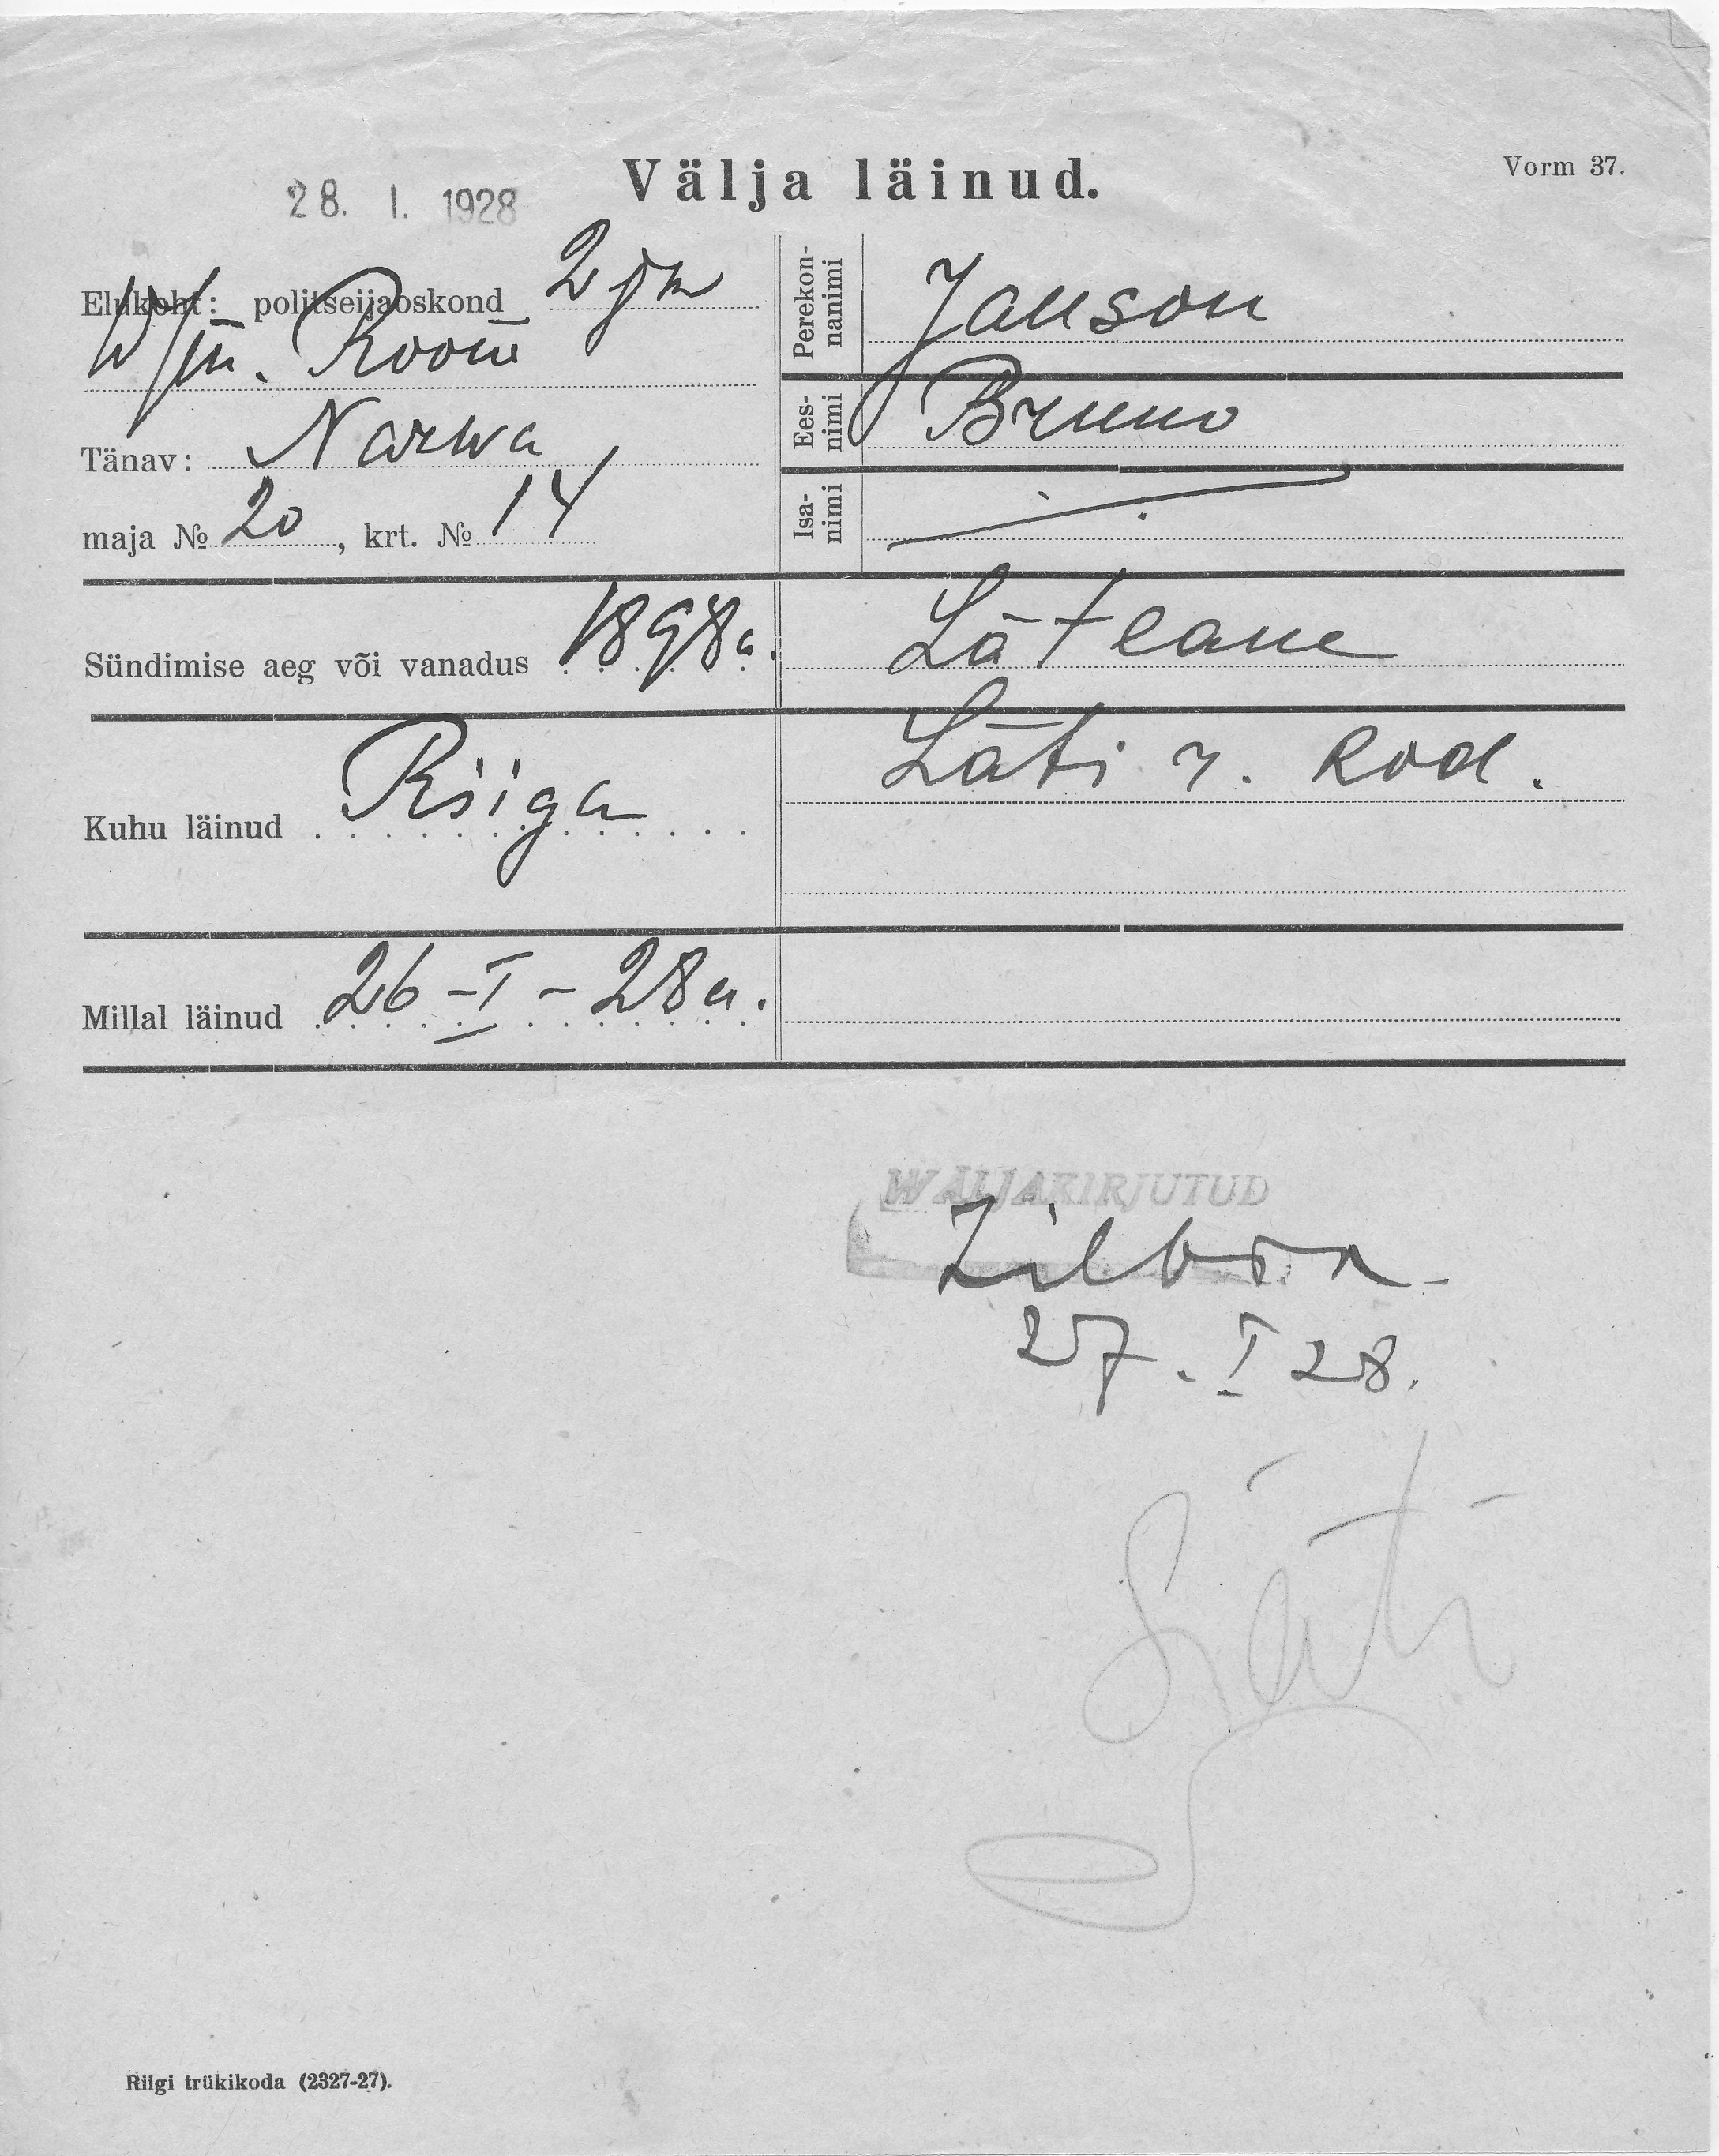 Välja läinud.
Vorm 37.
28. I. 1928
Elukoht: politseijaoskond 2 jm
Room
Tänav: Narwa
maja № 20, krt. № 14
Perekonnanimi Janson
Eesnimi Bruno
Isanimi
Sündimise aeg või vanadus 1898 a.
Lätlane
Läti r. kod.
Kuhu läinud Riiga
Millal läinud 26-I-28 a.
WÄLJAKIRJUTUD
27. I 28.
Läti
Riigi trükikoda (2327-27).